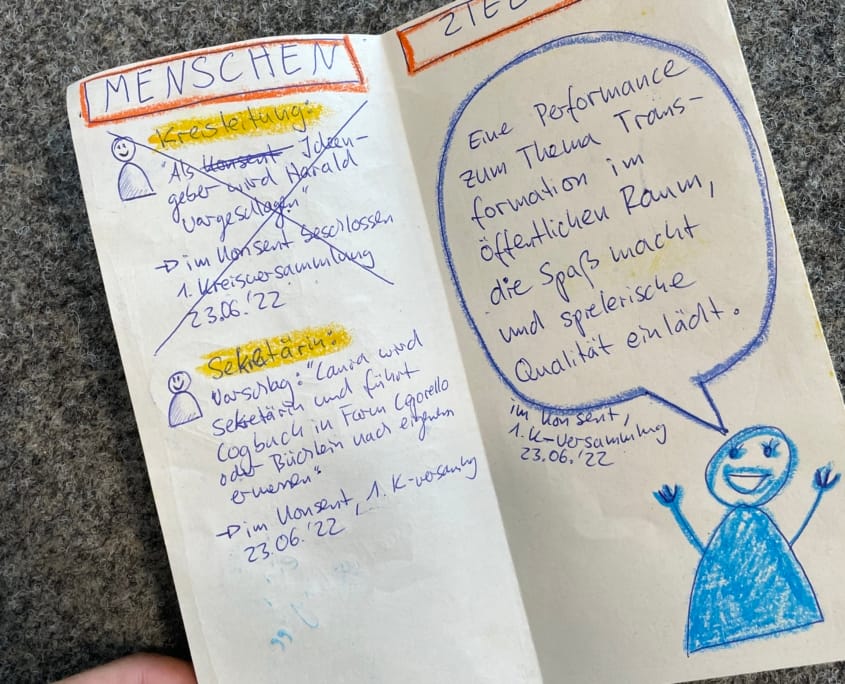 MENSCHEN
Kreisleitung:
"Als Konsent Ideen-
geber wird Harald
vorgeschlagen"
→ im Konsent beschlossen
1. Kreisversammlung
23.06.'22
Sekretärin:
Vorschlag: "Laura wird
Sekretärin und führt
Logbuch in Form
oder Büchlein nach eigenem
ermessen"
→ im Konsent, 1. K-versamlg
23.06.'22
ZIEL
Eine Performance
zum Thema Trans-
formation im
öffentlichen Raum,
die Spaß macht
und spielerische
Qualität einlädt.
im Konsent,
1. K-Versammlung
23.06.'22